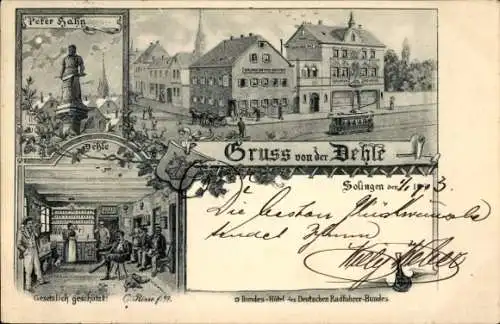 Peter Hahn
Dehle
Gruss von der Dehle
Solingen den 1/1 1903
Die besten Glückwünsche
sendet Ihnen
Gesetzlich geschützt!
Bundes-Hôtel des Deutschen Radfahrer-Bundes.